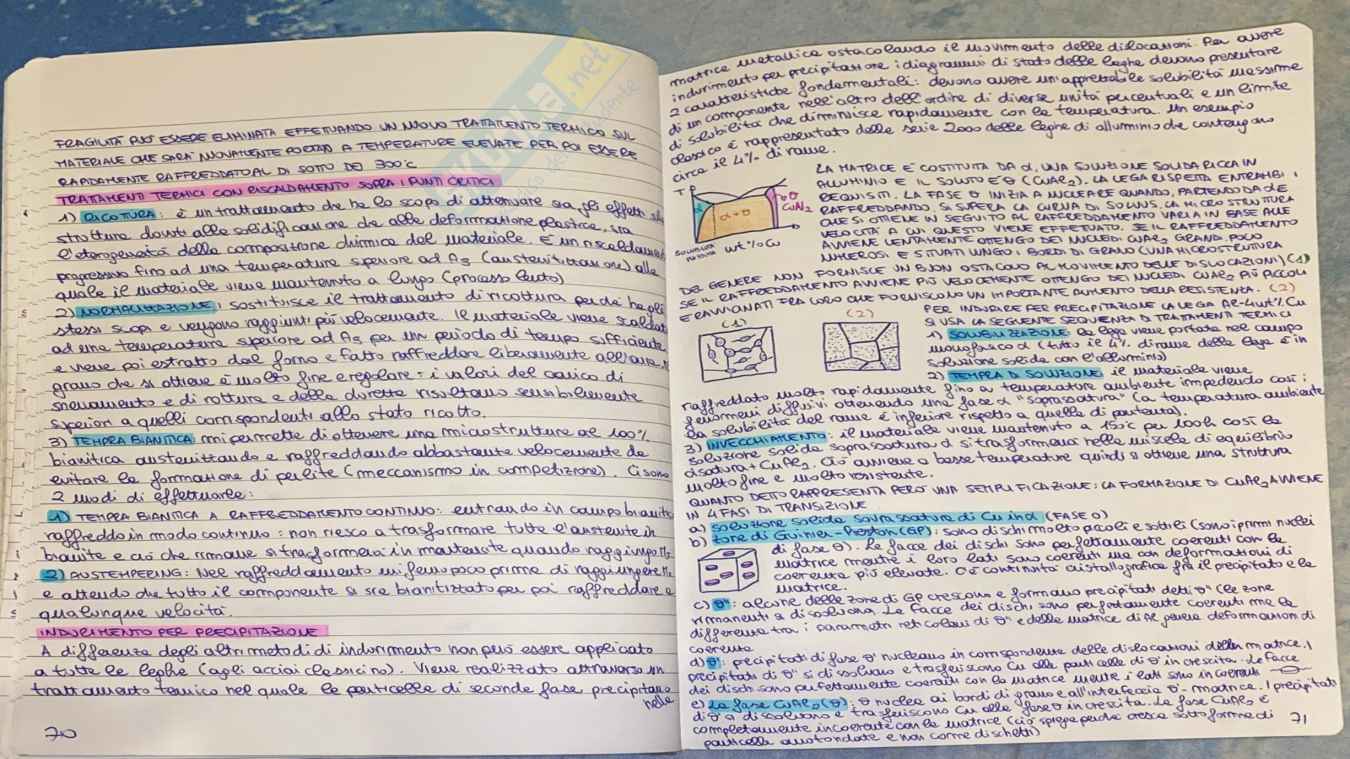 FRAGILITÀ PUÒ ESSERE ELIMINATA EFFETTUANDO UN NUOVO TRATTAMENTO TERMICO SUL
MATERIALE CHE SARÀ NUOVAMENTE PORTATO A TEMPERATURE ELEVATE PER POI ESSERE
RAPIDAMENTE RAFFREDDATO AL DI SOTTO DEI 300°C
TRATTAMENTI TERMICI CON RISCALDAMENTO SOPRA I PUNTI CRITICI
1) RICOTTURA: è un trattamento che ha lo scopo di attenuare sia gli effetti
strutture dovuti alla solidificazione che alla deformazione plastica, sia
l'eterogeneità della composizione chimica del materiale. È un riscaldamento
progressivo fino ad una temperatura superiore ad A3 (austenitizzazione) alla
quale il materiale viene mantenuto a lungo (processo lento)
2) NORMALIZZAZIONE: sostituisce il trattamento di ricottura perché ha gli
stessi scopi e vengono raggiunti più velocemente. Il materiale viene scaldato
ad una temperatura superiore ad A3 per un periodo di tempo sufficiente
e viene poi estratto dal forno e fatto raffreddare liberamente all'aria.
grano che si ottiene è molto fine e regolare: i valori del carico di
snervamento e di rottura e della durezza risultano sensibilmente
superiori a quelli corrispondenti allo stato ricotto.
3) TEMPRA BIANITICA: mi permette di ottenere una microstruttura al 100%
bianitica austenitizzando e raffreddando abbastanza velocemente da
evitare la formazione di perlite (meccanismo in competizione). Ci sono
2 modi di effettuarla:
1) TEMPRA BIANITICA A RAFFREDDAMENTO CONTINUO: entrando in campo bianitico
raffreddo in modo continuo: non riesco a trasformare tutta l'austenite in
bianite e ciò che rimane si trasformerà in martensite quando raggiungo Ms
2) AUSTEMPERING: Nel raffreddamento mi fermo poco prima di raggiungere Ms
e attendo che tutto il componente si sia bianitizzato per poi raffreddare a
qualunque velocità.
INDURIMENTO PER PRECIPITAZIONE
A differenza degli altri metodi di indurimento non può essere applicato
a tutte le leghe (agli acciai classici no). Viene realizzato attraverso un
trattamento termico nel quale le particelle di seconda fase precipitano
nella
70
matrice metallica ostacolando il movimento delle dislocazioni. Per avere
indurimento per precipitazione i diagrammi di stato delle leghe devono presentare
2 caratteristiche fondamentali: devono avere un'apprezzabile solubilità massima
di un componente nell'altro dell'ordine di diverse unità percentuali e un limite
di solubilità che diminuisce rapidamente con la temperatura. Un esempio
classico è rappresentato dalla serie 2000 delle leghe di alluminio che contengono
circa il 4% di rame.
LA MATRICE È COSTITUITA DA α, UNA SOLUZIONE SOLIDA RICCA IN
ALLUMINIO E IL SOLUTO È θ (CuAl2). LA LEGA RISPETTA ENTRAMBI I
REQUISITI. LA FASE θ INIZIA A NUCLEARE QUANDO, PARTENDO DA α E
RAFFREDDANDO, SI SUPERA LA CURVA DI SOLVUS. LA MICROSTRUTTURA
CHE SI OTTIENE IN SEGUITO AL RAFFREDDAMENTO VARIA IN BASE ALLE
VELOCITÀ A CUI QUESTO VIENE EFFETTUATO. SE IL RAFFREDDAMENTO
AVVIENE LENTAMENTE OTTENGO DEI NUCLEI CuAl2 GRANDI, POCO
NUMEROSI E SITUATI LUNGO I BORDI DI GRANO (UNA MICROSTRUTTURA
T
α
α+θ
θ
CuAl2
wt% Cu
DEL GENERE NON FORNISCE UN BUON OSTACOLO AL MOVIMENTO DELLE DISLOCAZIONI) (1)
SE IL RAFFREDDAMENTO AVVIENE PIÙ VELOCEMENTE OTTENGO DEI NUCLEI CuAl2 PIÙ PICCOLI
E RAVVICINATI FRA LORO CHE FORNISCONO UN IMPORTANTE AUMENTO DELLA RESISTENZA. (2)
(1)
(2)
PER INDURIRE PER PRECIPITAZIONE LA LEGA Al-4wt% Cu
SI USA LA SEGUENTE SEQUENZA DI TRATTAMENTI TERMICI
1) SOLUBILIZZAZIONE la lega viene portata nel campo
monofasico α (tutto il 4% di rame della lega è in
soluzione solida con l'alluminio)
2) TEMPRA DI SOLUZIONE il materiale viene
raffreddato molto rapidamente fino a temperatura ambiente impedendo così i
fenomeni diffusivi ottenendo una fase α "soprassatura" (a temperatura ambiente
la solubilità del rame è inferiore rispetto a quella di partenza).
3) INVECCHIAMENTO: il materiale viene mantenuto a 150°C per 100h così la
soluzione solida soprassatura α si trasformerà nella miscela di equilibrio
α satura + CuAl2. Ciò avviene a basse temperature quindi si ottiene una struttura
molto fine e molto resistente.
QUANTO DETTO RAPPRESENTA PERÒ UNA SEMPLIFICAZIONE: LA FORMAZIONE DI CuAl2 AVVIENE
IN 4 FASI DI TRANSIZIONE
a) soluzione solida soprassatura di Cu in α (FASE 0)
b) zone di Guinier-Preston (GP): sono dischi molto piccoli e sottili (sono i primi nuclei
di fase θ). Le facce dei dischi sono perfettamente coerenti con la
matrice mentre i loro lati sono coerenti ma con deformazioni di
coerenza più elevate. C'è continuità cristallografica fra il precipitato e la
matrice.
c) θ": alcune delle zone di GP crescono e formano precipitati detti θ" (le zone
rimanenti si dissolvono. Le facce dei dischi sono perfettamente coerenti ma la
differenza tra i parametri reticolari di θ" e della matrice di Al genera deformazioni di
coerenza
d) θ': precipitati di fase θ' nucleano in corrispondenza delle dislocazioni della matrice. I
precipitati di θ" si dissolvono e trasferiscono Cu alle particelle di θ' in crescita. Le facce
dei dischi sono perfettamente coerenti con la matrice mentre i lati sono incoerenti
e) La fase CuAl2 (θ): θ nuclea ai bordi di grano e all'interfaccia θ'-matrice. I precipitati
di θ' si dissolvono e trasferiscono Cu alla fase θ in crescita. La fase CuAl2 è
completamente incoerente con la matrice (ciò spiega perché cresce sotto forma di
particelle arrotondate e non come dischetti)
71